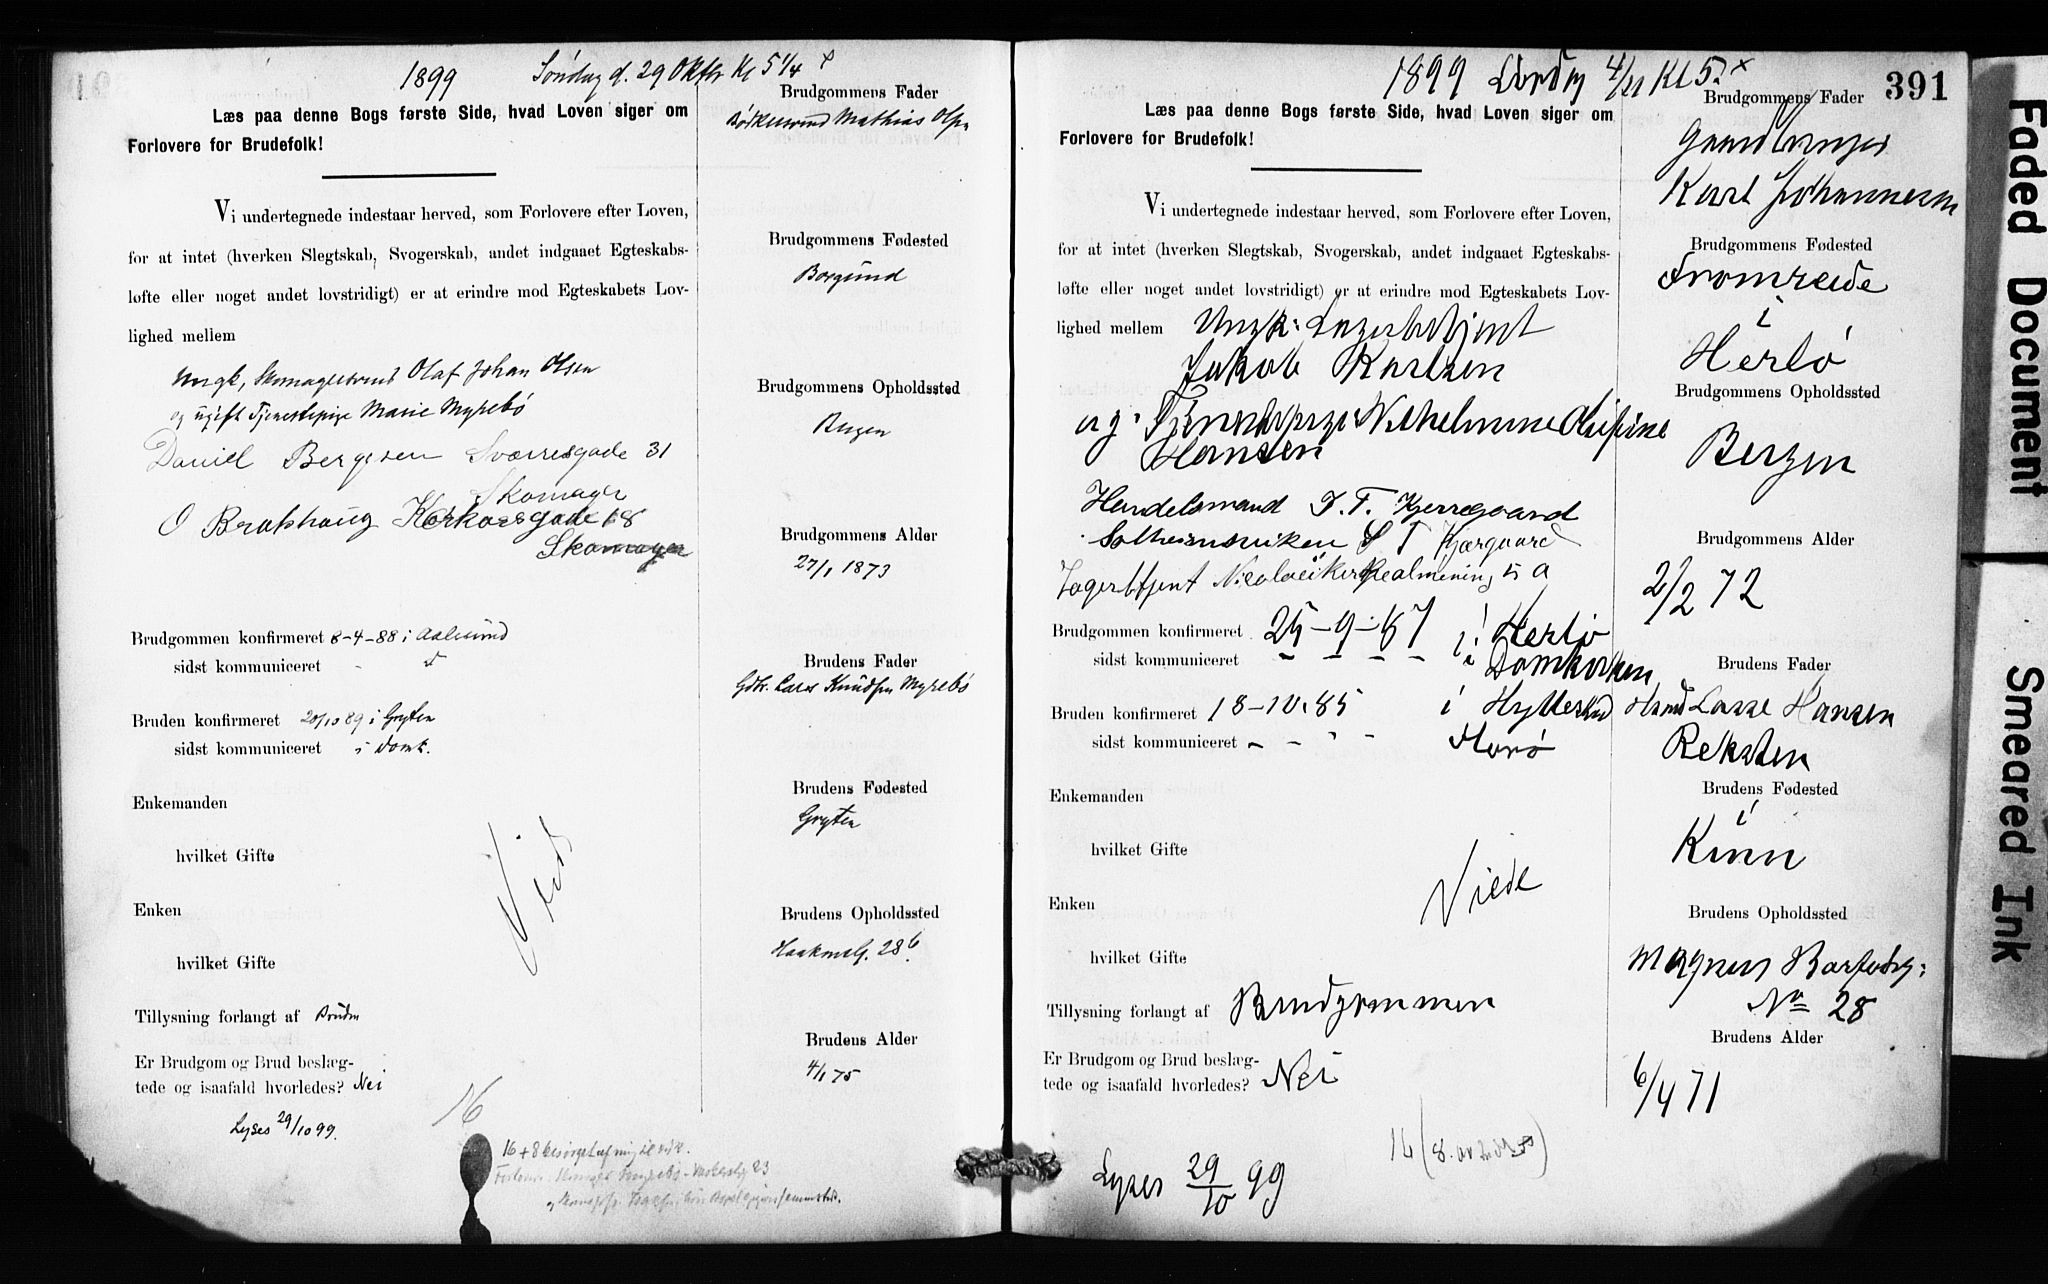 1899 Søndag d. 29 Oktbr Kl 5 1/4
Læs paa denne Bogs første Side, hvad Loven siger om
Forlovere for Brudefolk!
Vi undertegnede indestaar herved, som Forlovere efter Loven,
for at intet (hverken Slegtskab, Svogerskab, andet indgaaet Egteskabs-
løfte eller noget andet lovstridigt) er at erindre mod Egteskabets Lov-
lighed mellem
Ungk, Skomagersvend Olaf Johan Olsen
og ugift Tjenestepige Marie Myrebö
Daniel Bergesen Sværresgade 31
Skomager
O Brakhaug Korkaasgade 18
Skomager
Brudgommen konfirmeret 8-4-88 i Aalesund
sidst kommuniceret
Bruden konfirmeret 20/10 89 i Gryten
sidst kommuniceret i Domk.
Enkemanden
hvilket Gifte
Enken
hvilket Gifte
Viede
Tillysning forlangt af Bruden
Er Brudgom og Brud beslæg-
tede og isaafald hvorledes? Nei
Lyses 29/10 99.
16
16 + 8 besørget af mig til
Brudgommens Fader
Mathias Olsen
Brudgommens Fødested
Borgund
Brudgommens Opholdssted
Bergen
Brudgommens Alder
27/1 1873
Brudens Fader
Gdbr. Lars Knudsen Myrebö
Brudens Fødested
Gryten
Brudens Opholdssted
Haakonsg. 28 b
Brudens Alder
4/1 75
1899 Lørdag 4/11 Kl 5
391
Læs paa denne Bogs første Side, hvad Loven siger om
Forlovere for Brudefolk!
Vi undertegnede indestaar herved, som Forlovere efter Loven,
for at intet (hverken Slegtskab, Svogerskab, andet indgaaet Egteskabs-
løfte eller noget andet lovstridigt) er at erindre mod Egteskabets Lov-
lighed mellem Ungk: Lagerbetjent
Jakob Karlsen
og Tjenestepige Wilhelmine Olufine
Hansen
Handelsmand S. T. Kjerregaard
Solheimsviken S T Kjærgaard
Lagerbetjent Nicolaikirkealmening 5 a
Brudgommen konfirmeret 25-9-87 i Herlø
sidst kommuniceret i Domkirken
Bruden konfirmeret 18-10.85 i Hyllestad
sidst kommuniceret Florø
Enkemanden
hvilket Gifte
Enken
hvilket Gifte
Viede
Tillysning forlangt af Brudgommen
Er Brudgom og Brud beslæg-
tede og isaafald hvorledes? Nei
Lyses 29/10 99
Brudgommens Fader
Gaardbruger
Karl Johannesen
Brudgommens Fødested
Fromreide
i
Herlö
Brudgommens Opholdssted
Bergen
Brudgommens Alder
2/2 72
Brudens Fader
Lasse Hansen
Reksten
Brudens Fødested
i
Kinn
Brudens Opholdssted
Magnus Barfodsg:
No 28
Brudens Alder
6/4 71
Faded Document
Smeared Ink